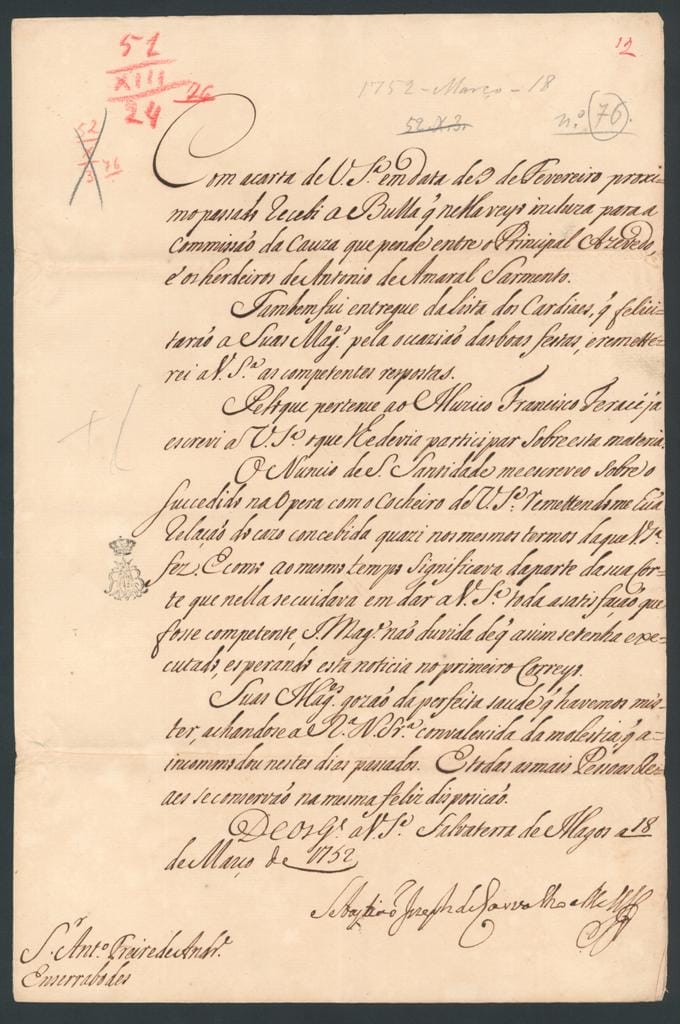 51
XIII
24 76
12
1752 - Março - 18
52.X.3.
n.º 76.
52
X
3 76
Com a carta de V. S.ª em data de 3 de Fevereiro proxi=
mo passado recebi a Bulla q̃ nella veyo incluza para a
Commissão da Cauza que pende entre o Principal Azevedo,
e os herdeiros de Antonio de Amaral Sarmento.
Tambem fui entregue da lista dos Cardiaes, q̃ felici=
tarão a Suas Mag.ᵉˢ pela occazião das boas festas, e remette=
rei a V. S.ª as competentes respostas.
Pelo que pertence ao Muzico Francisco Feracci ja
escrevi a V. S.ª o que lhe devia participar sobre esta materia.
O Nuncio de S. Santidade me escreveo sobre o
succedido na Opera com o Cocheiro de V. S.ª remettendome hũa
Relação do cazo concebida quazi nos mesmos termos da que V. S.ª
fez. E como ao mesmo tempo significava da parte da sua Cor=
te que nella se cuidava em dar a V. S.ª toda a satisfação que
fosse competente, S. Mag.ᵉ não duvida de q̃ assim se tenha exe=
cutado, esperando esta noticia no primeiro Correyo.
Suas Mag.ᵉˢ gozão da perfeita saude q̃ havemos mis=
ter, achandose a R.ª N. Sr.ª convalecida da molestia q̃ a
incommodou nestes dias passados. E todas as mais Pessoas Re=
aes se conservão na mesma feliz disposição.
Deos g.ᵉ a V. S.ª Salvaterra de Magos a 18
de Março de 1752
Sebastião Joseph de Carvalho e Mello
S.ʳ Ant.º Freire de Andr.ᵉ
Enserrabodes